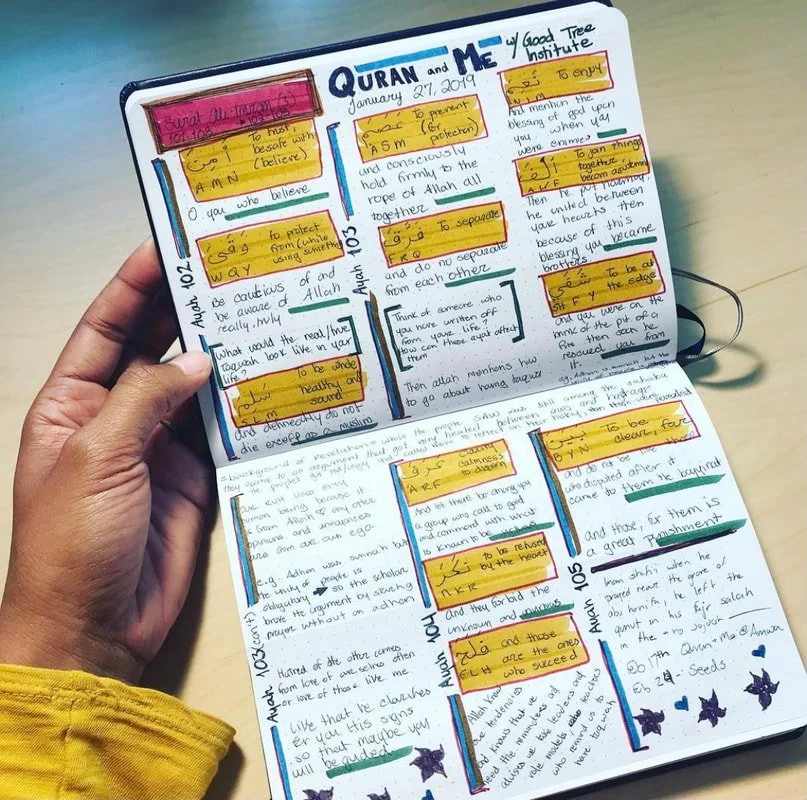 QURAN and ME w/ Good Tree Institute
January 27, 2019
Surat Ali-Imran (3)
أَمِنَ To trust,
be safe with
(believe)
A M N
O you who believe
Ayah 102
وَقَىَ to protect
from (while
using something)
W Q Y
Be cautious of and
be aware of Allah
really, truly
[what would the real/true
taqwah look like in your
life?]
سَلِمَ To be whole
healthy and
sound
S L M
and definitely do not
die except as a muslim
Ayah 103
عَصَمَ To prevent
(for
protection)
A S M
and consciously
hold firmly to the
rope of Allah all
together
فَرَقَ To separate
F R Q
and do no separate
from each other
[Think of someone who
you have written off
from your life?
How can these ayat affect
them]
Then Allah mentions how
to go about having taqwa
نَعِمَ To enjoy
N I M
And mention the
blessing of god upon
you when you
were enemies
أَلِفَ To join things
together,
Then he put harmony,
he united between
your hearts then
because of this
blessing you became
brothers
شَفَى To be at
the edge
SH F Y
and you were on the
brink of the pit of a
fire then soon he
rescued you from
it.
background of revelation = while the prophet SAW was still among the sahaba
Ayah 103 (cont)
are evil into every
human being because it
is from Allah any other
opinions and arrogances
are from our own ego.
e.g. Adhan was sunnah but
the unity of people is
obligatory → so the scholar
broke the argument by starting
prayer without an adhan
Hatred of the other comes
from love of ourselves often
or love of those like me
Like that he clarifies
for you His signs
so that maybe you
will be guided
Ayah 104
عَرَفَ
calmness
A R F
And let there be among you
a group who call to god
and command with what
is known to be
نَكَرَ to be refused
by the heart
N K R
and they forbid the
unknown and
فَلَحَ and those
are the ones
who succeed
F L H
Allah knows
we have tendencies
and knows that we
need the reminders of
role models and teachers
who remind us to
have
Ayah 105
بَيَنَ To be
clear, far
B Y N
and do not be like those
who disputed after it
came to them the bayyinat
and those, for them is
a great Punishment
Imam shafi'i when he
prayed near the grave of
abu hanifa, he left the
qunut in his fajr salah
in the
Feb 17th Quran + Me @
Feb 24 - Seeds